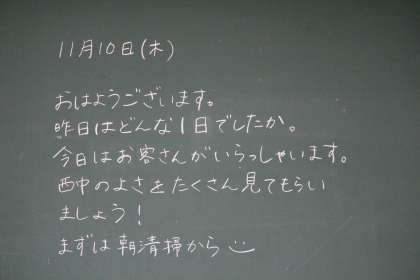 11月10日(木)
おはようございます。
昨日はどんな1日でしたか。
今日はお客さんがいらっしゃいます。
西中のよさをたくさん見てもらい
ましょう!
まずは朝清掃から